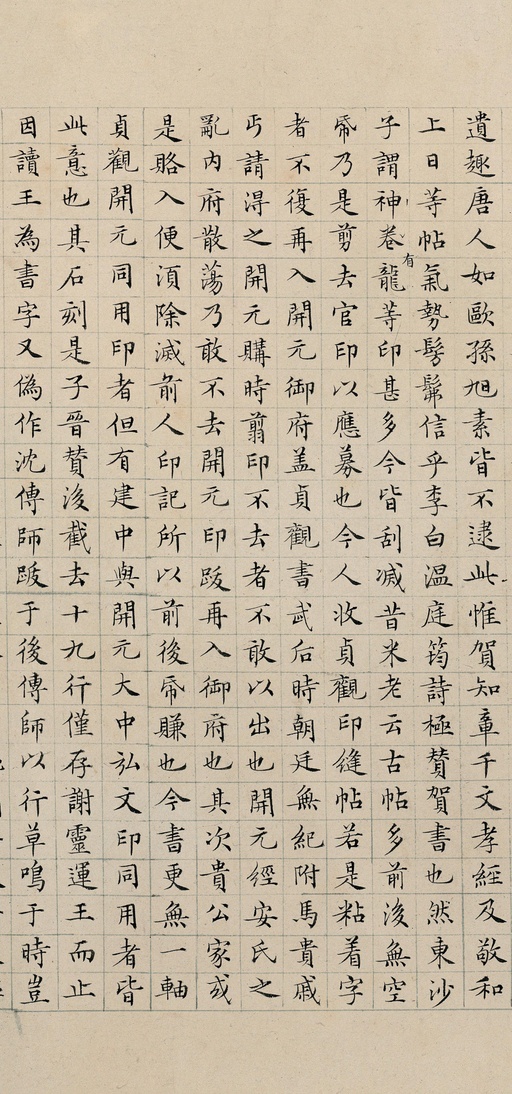 遺趣唐人如歐孫旭素皆不逮此惟賀知章千文孝經及敬和
上日等帖氣勢髣髴信乎李白溫庭筠詩極贊賀書也然東沙
子謂神卷有龍等印甚多今皆刮滅昔米老云古帖多前後無空
帋乃是剪去官印以應募也今人收貞觀印縫帖若是粘着字
者不復再入開元御府盖貞觀書武后時朝廷無紀附馬貴戚
丐請得之開元購時翦印不去者不敢以出也開元經安氏之
亂內府散蕩乃敢不去開元印跋再入御府也其次貴公家或
是賂入便須除滅前人印記所以前後帋賺也今書更無一軸
貞觀開元同用印者但有建中與開元大中弘文印同用者皆
此意也其石刻是子晉贊後截去十九行僅存謝靈運王而止
因讀王為書字又偽作沈傳師跋于後傳師以行草鳴于時豈